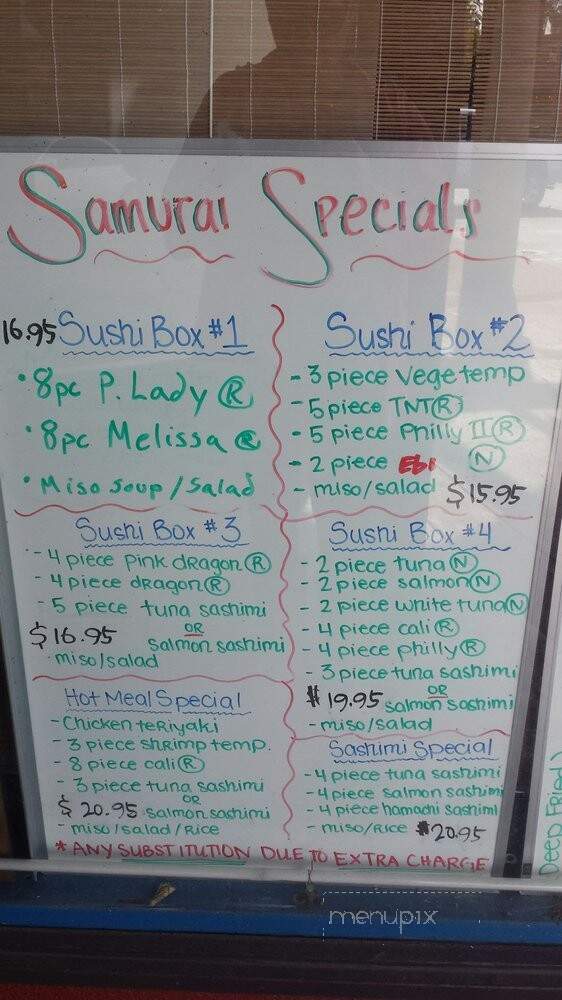 Samurai Specials
16.95 Sushi Box #1
• 8pc P. Lady Ⓡ
• 8pc Melissa Ⓡ
• Miso soup / Salad
Sushi Box #2
- 3 piece vege temp
- 5 piece TNT Ⓡ
- 5 piece Philly II Ⓡ
- 2 piece Ebi Ⓝ
- miso/salad $15.95
Sushi Box #3
- 4 piece pink dragon Ⓡ
- 4 piece dragon Ⓡ
- 5 piece tuna sashimi
OR
$16.95 salmon sashimi
- miso/salad
Sushi Box #4
- 2 piece tuna Ⓝ
- 2 piece salmon Ⓝ
- 2 piece white tuna Ⓝ
- 4 piece cali Ⓡ
- 4 piece philly Ⓡ
- 3 piece tuna sashimi
OR
$19.95 salmon sashimi
- miso/salad
Hot Meal Special
- Chicken teriyaki
- 3 piece shrimp temp.
- 8 piece cali Ⓡ
- 3 piece tuna sashimi
OR
$20.95 salmon sashimi
- miso/salad/Rice
Sashimi Special
- 4 piece tuna sashimi
- 4 piece salmon sashimi
- 4 piece hamachi sashimi
- miso/rice $20.95
* ANY SUBSTITUTION DUE TO EXTRA CHARGE
Deep Fried)
menupix